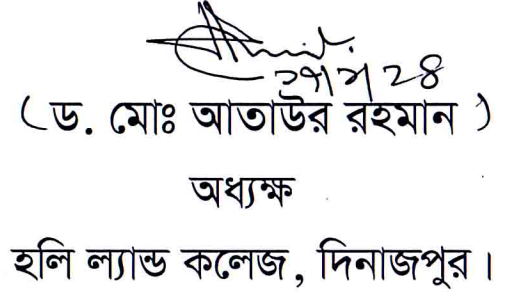 (ড. মোঃ আতাউর রহমান )
অধ্যক্ষ
হলি ল্যান্ড কলেজ, দিনাজপুর।